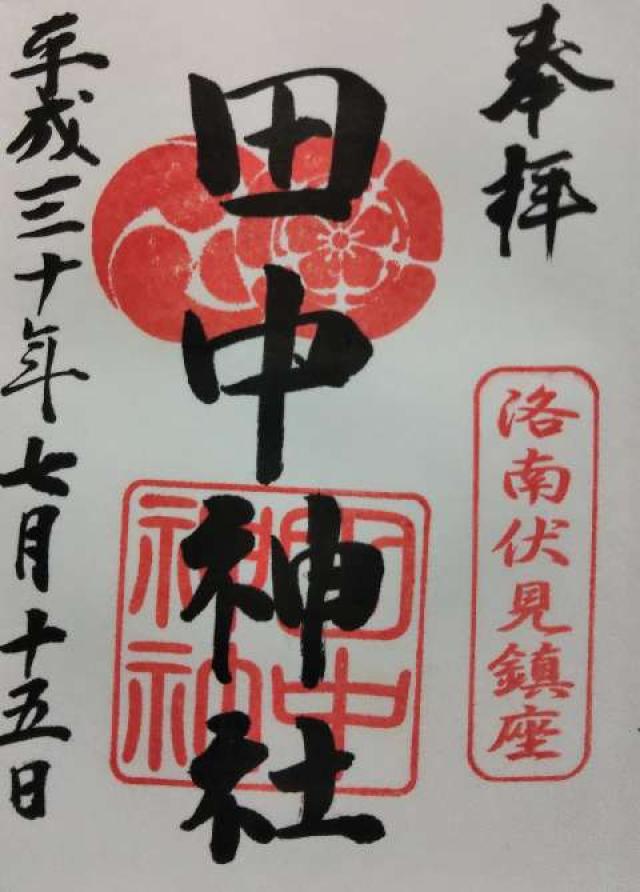 奉拝
洛南伏見鎮座
田中神社
田中神社
平成三十年七月十五日